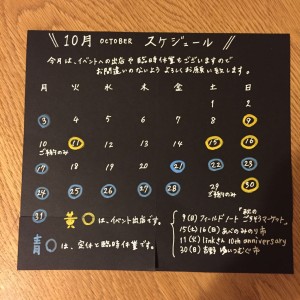 10月 OCTOBER スケジュール
今月は、イベントへの出店や臨時休業もございますので
お間違いのないよう よろしくお願い致します。
月 火 水 木 金 土 日
1 2
3 4 5 6 7 8 9
10 11 12 13 14 15 16
ご予約のみ
17 18 19 20 21 22 23
24 25 26 27 28 29 30
ご予約のみ
31 黄○は、イベント出店です。
青○は、定休と臨時休業です。
9(日)フィールドノート「秋の
ごちそうマーケット」
15(土)16(日)あべのみのり市
11(火)link さん 10th anniversary
30(日)吉野 喰いつむぐ市